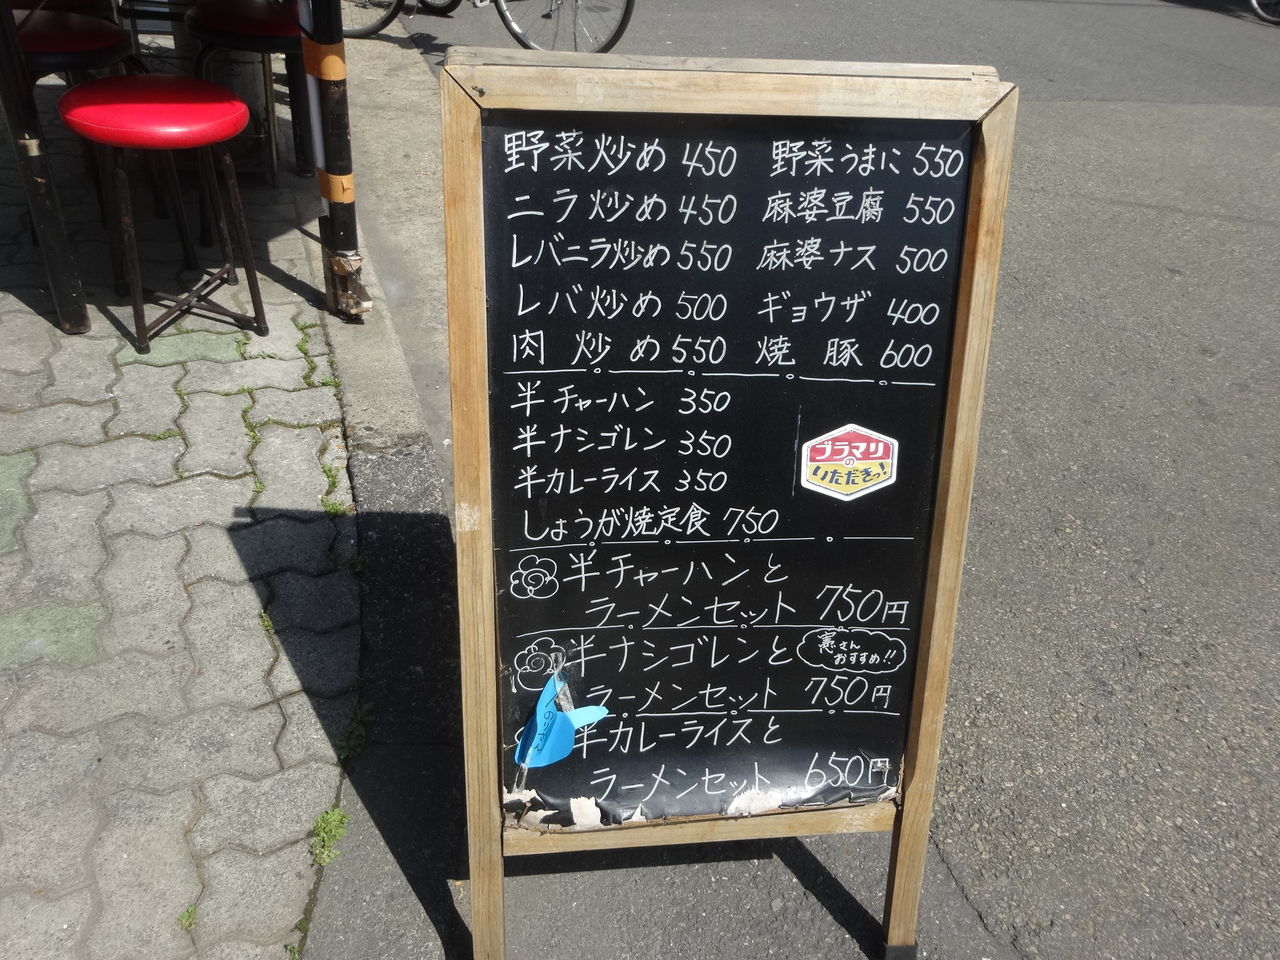 野菜炒め 450 野菜うまに 550
ニラ炒め 450 麻婆豆腐 550
レバニラ炒め 550 麻婆ナス 500
レバ炒め 500 ギョウザ 400
肉炒め 550 焼豚 600
半チャーハン 350
半ナシゴレン 350
半カレーライス 350
ブラマリ
の
いただきっ!
しょうが焼定食 750
半チャーハンと
ラーメンセット 750円
半ナシゴレンと
憲さん
おすすめ!!
ラーメンセット 750円
半カレーライスと
ラーメンセット 650円